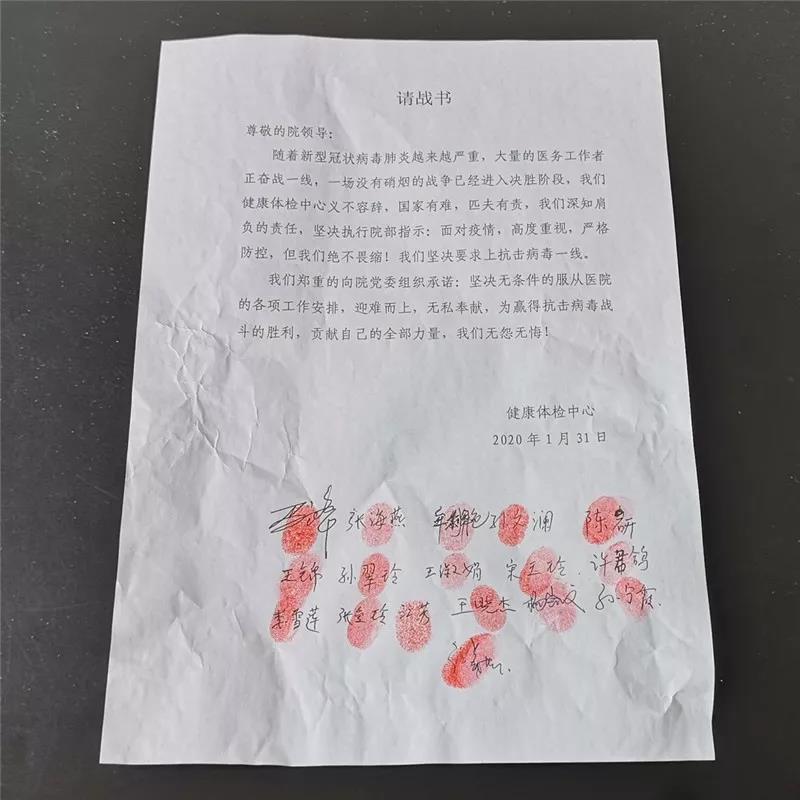 请战书
尊敬的院领导：
随着新型冠状病毒肺炎越来越严重，大量的医务工作者
正奋战一线，一场没有硝烟的战争已经进入决胜阶段，我们
健康体检中心义不容辞，国家有难，匹夫有责，我们深知肩
负的责任，坚决执行院部指示：面对疫情，高度重视，严格
防控，但我们绝不畏缩！我们坚决要求上抗击病毒一线。
我们郑重的向院党委组织承诺：坚决无条件的服从医院
的各项工作安排，迎难而上，无私奉献，为赢得抗击病毒战
斗的胜利，贡献自己的全部力量，我们无怨无悔！
健康体检中心
2020 年 1 月 31 日
张海燕 陈
王锦 孙翠玲 王淑娟 宋玉玲 许君鸽
李雪莲 张立玲 许芳 王晓杰